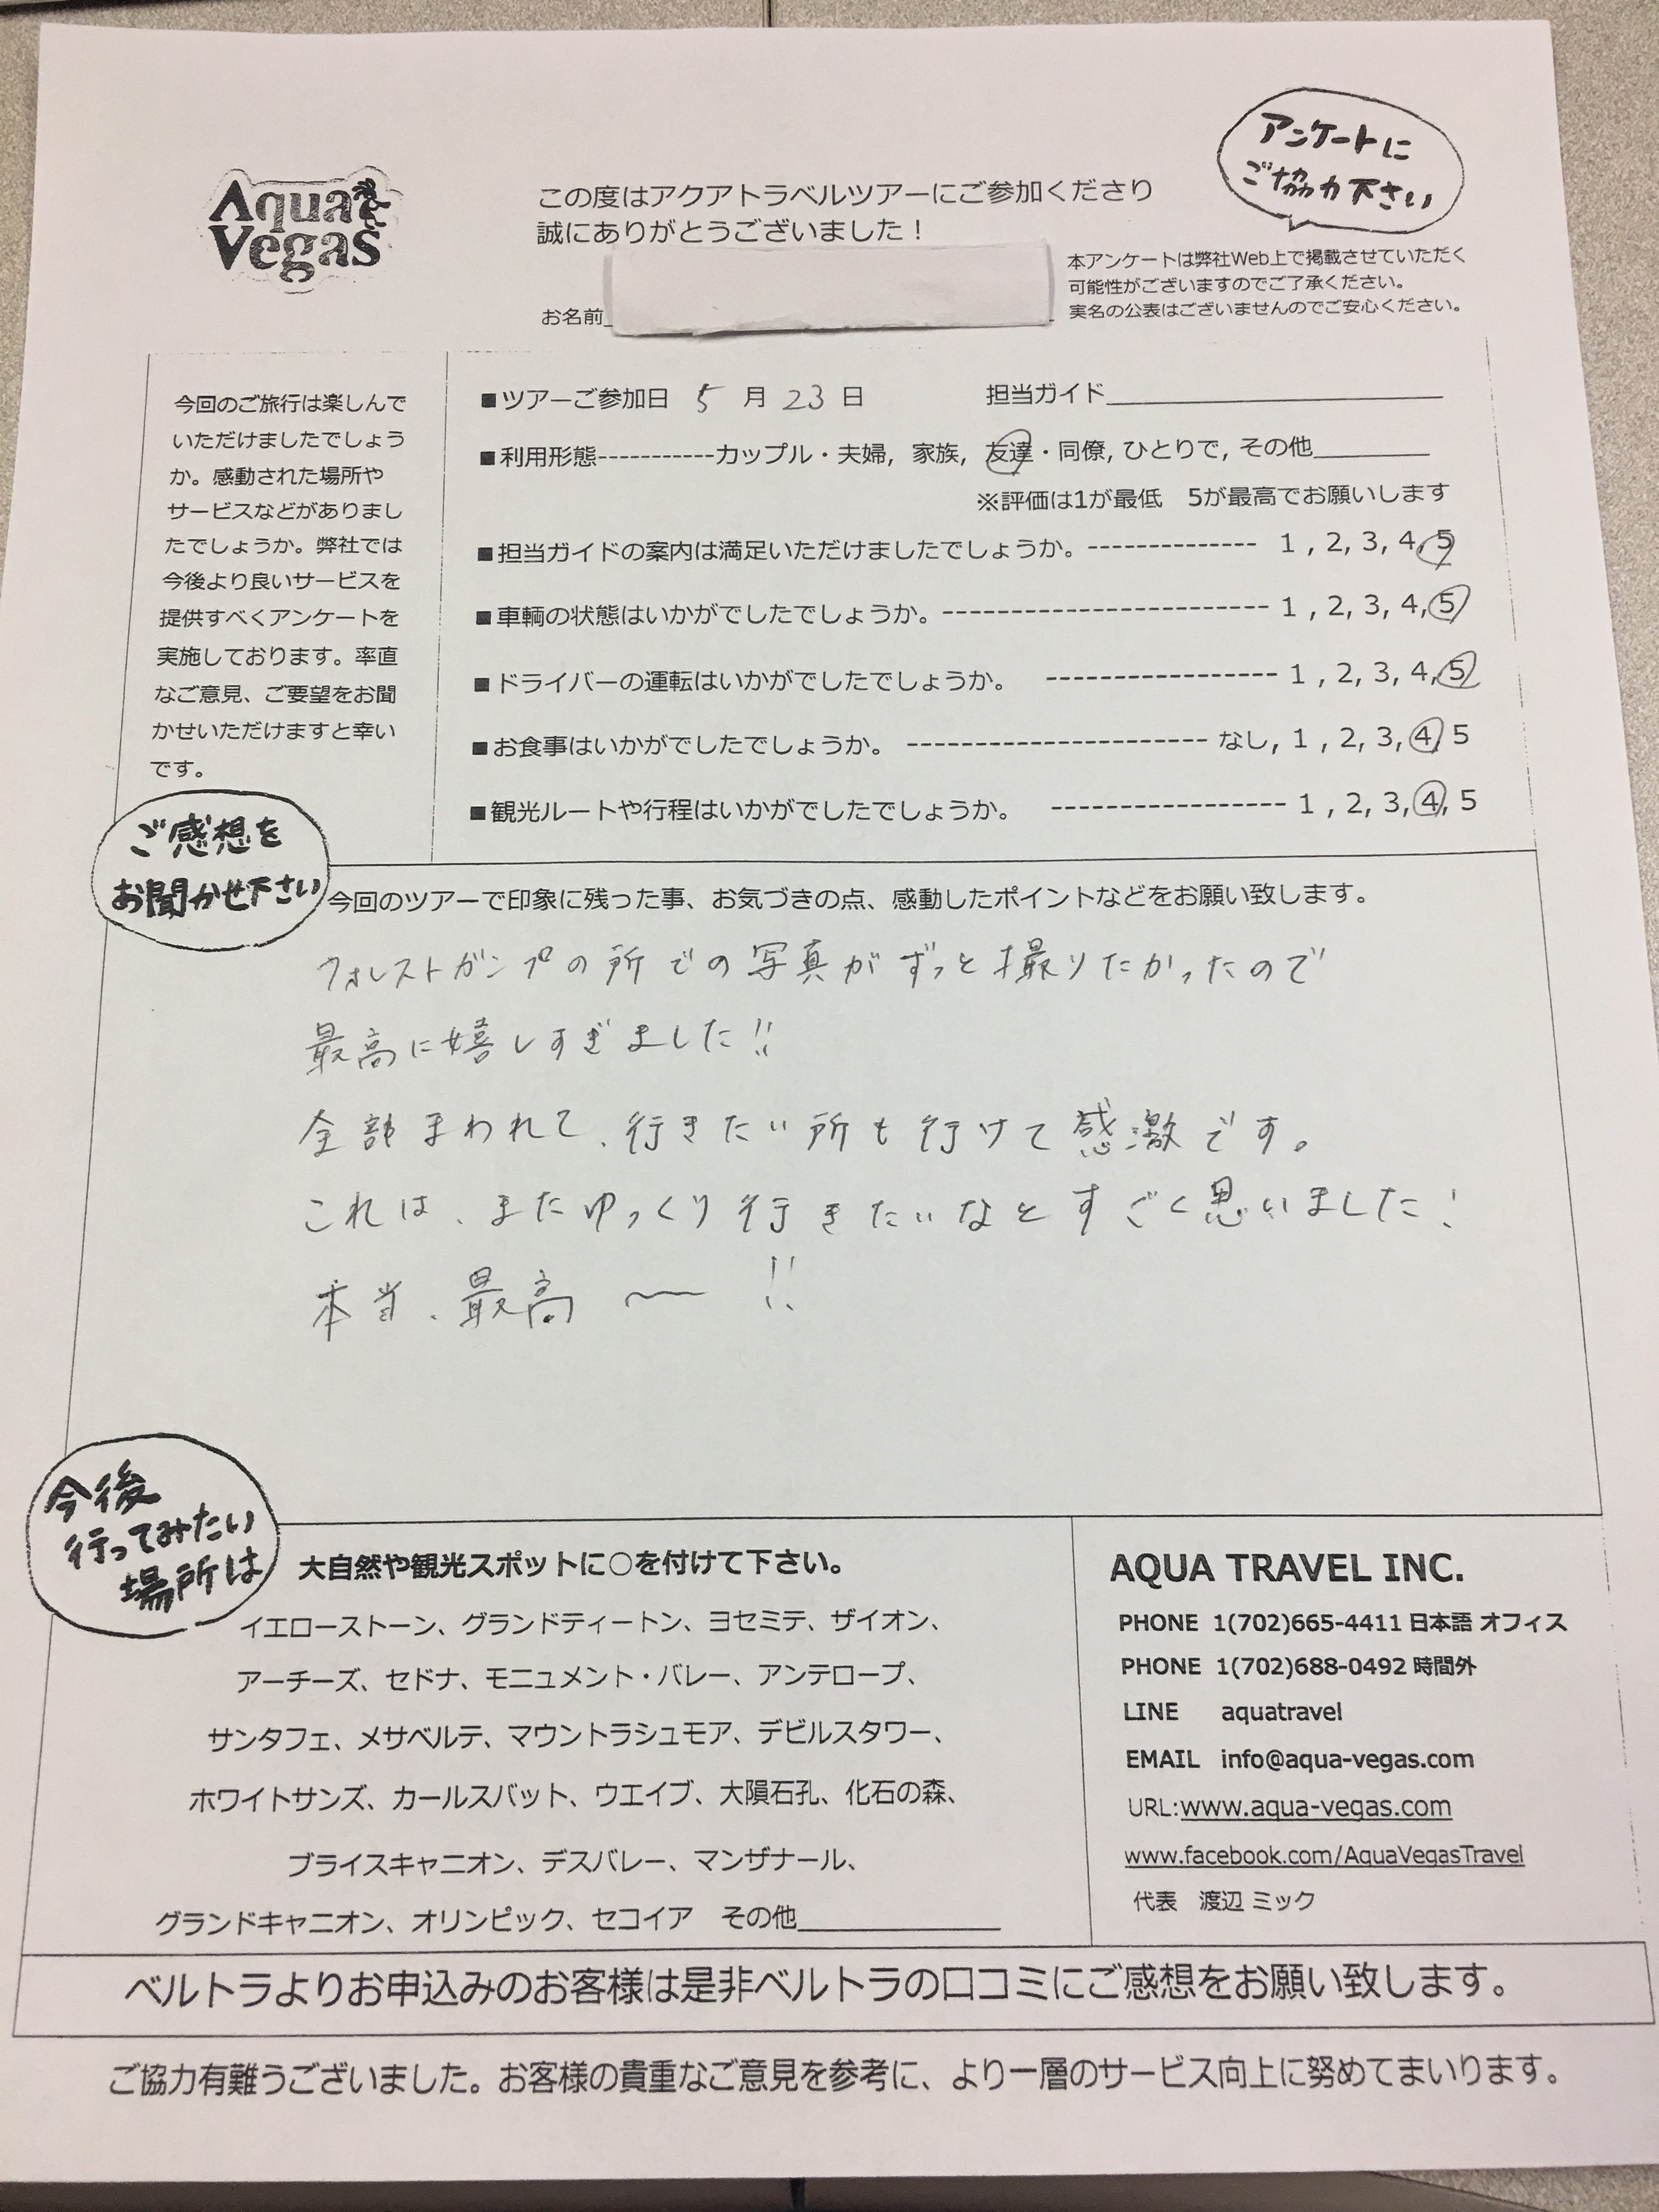 アンケートに
ご協力下さい
Aqua
Vegas
この度はアクアトラベルツアーにご参加くださり
誠にありがとうございました！
本アンケートは弊社Web上で掲載させていただく
可能性がございますのでご了承ください。
実名の公表はございませんのでご安心ください。
お名前
今回のご旅行は楽しんで
いただけましたでしょう
か。感動された場所や
サービスなどがありまし
たでしょうか。弊社では
今後より良いサービスを
提供すべくアンケートを
実施しております。率直
なご意見、ご要望をお聞
かせいただけますと幸い
です。
■ツアーご参加日 5 月 23 日 担当ガイド
■利用形態-----------カップル・夫婦, 家族, 友達・同僚, ひとりで, その他
※評価は1が最低 5が最高でお願いします
■担当ガイドの案内は満足いただけましたでしょうか。-------------- 1 , 2, 3, 4, 5
■車輌の状態はいかがでしたでしょうか。------------------------ 1 , 2, 3, 4, 5
■ドライバーの運転はいかがでしたでしょうか。 ----------------- 1 , 2, 3, 4, 5
■お食事はいかがでしたでしょうか。 ---------------------- なし, 1 , 2, 3, 4, 5
■観光ルートや行程はいかがでしたでしょうか。 ----------------- 1 , 2, 3, 4, 5
ご感想を
お聞かせ下さい
今回のツアーで印象に残った事、お気づきの点、感動したポイントなどをお願い致します。
フォレストガンプの所での写真がずっと撮りたかったので
最高に嬉しすぎました!!
全部まわれて、行きたい所も行けて感激です。
これは、またゆっくり行きたいなとすごく思いました!
本当、最高〜!!
今後
行ってみたい
場所は
大自然や観光スポットに○を付けて下さい。
イエローストーン、グランドティートン、ヨセミテ、ザイオン、
アーチーズ、セドナ、モニュメント・バレー、アンテロープ、
サンタフェ、メサベルテ、マウントラシュモア、デビルスタワー、
ホワイトサンズ、カールスバット、ウエイブ、大隕石孔、化石の森、
ブライスキャニオン、デスバレー、マンザナール、
グランドキャニオン、オリンピック、セコイア その他
AQUA TRAVEL INC.
PHONE 1(702)665-4411 日本語 オフィス
PHONE 1(702)688-0492 時間外
LINE aquatravel
EMAIL info@aqua-vegas.com
URL:www.aqua-vegas.com
www.facebook.com/AquaVegasTravel
代表 渡辺 ミック
ベルトラよりお申込みのお客様は是非ベルトラの口コミにご感想をお願い致します。
ご協力有難うございました。お客様の貴重なご意見を参考に、より一層のサービス向上に努めてまいります。